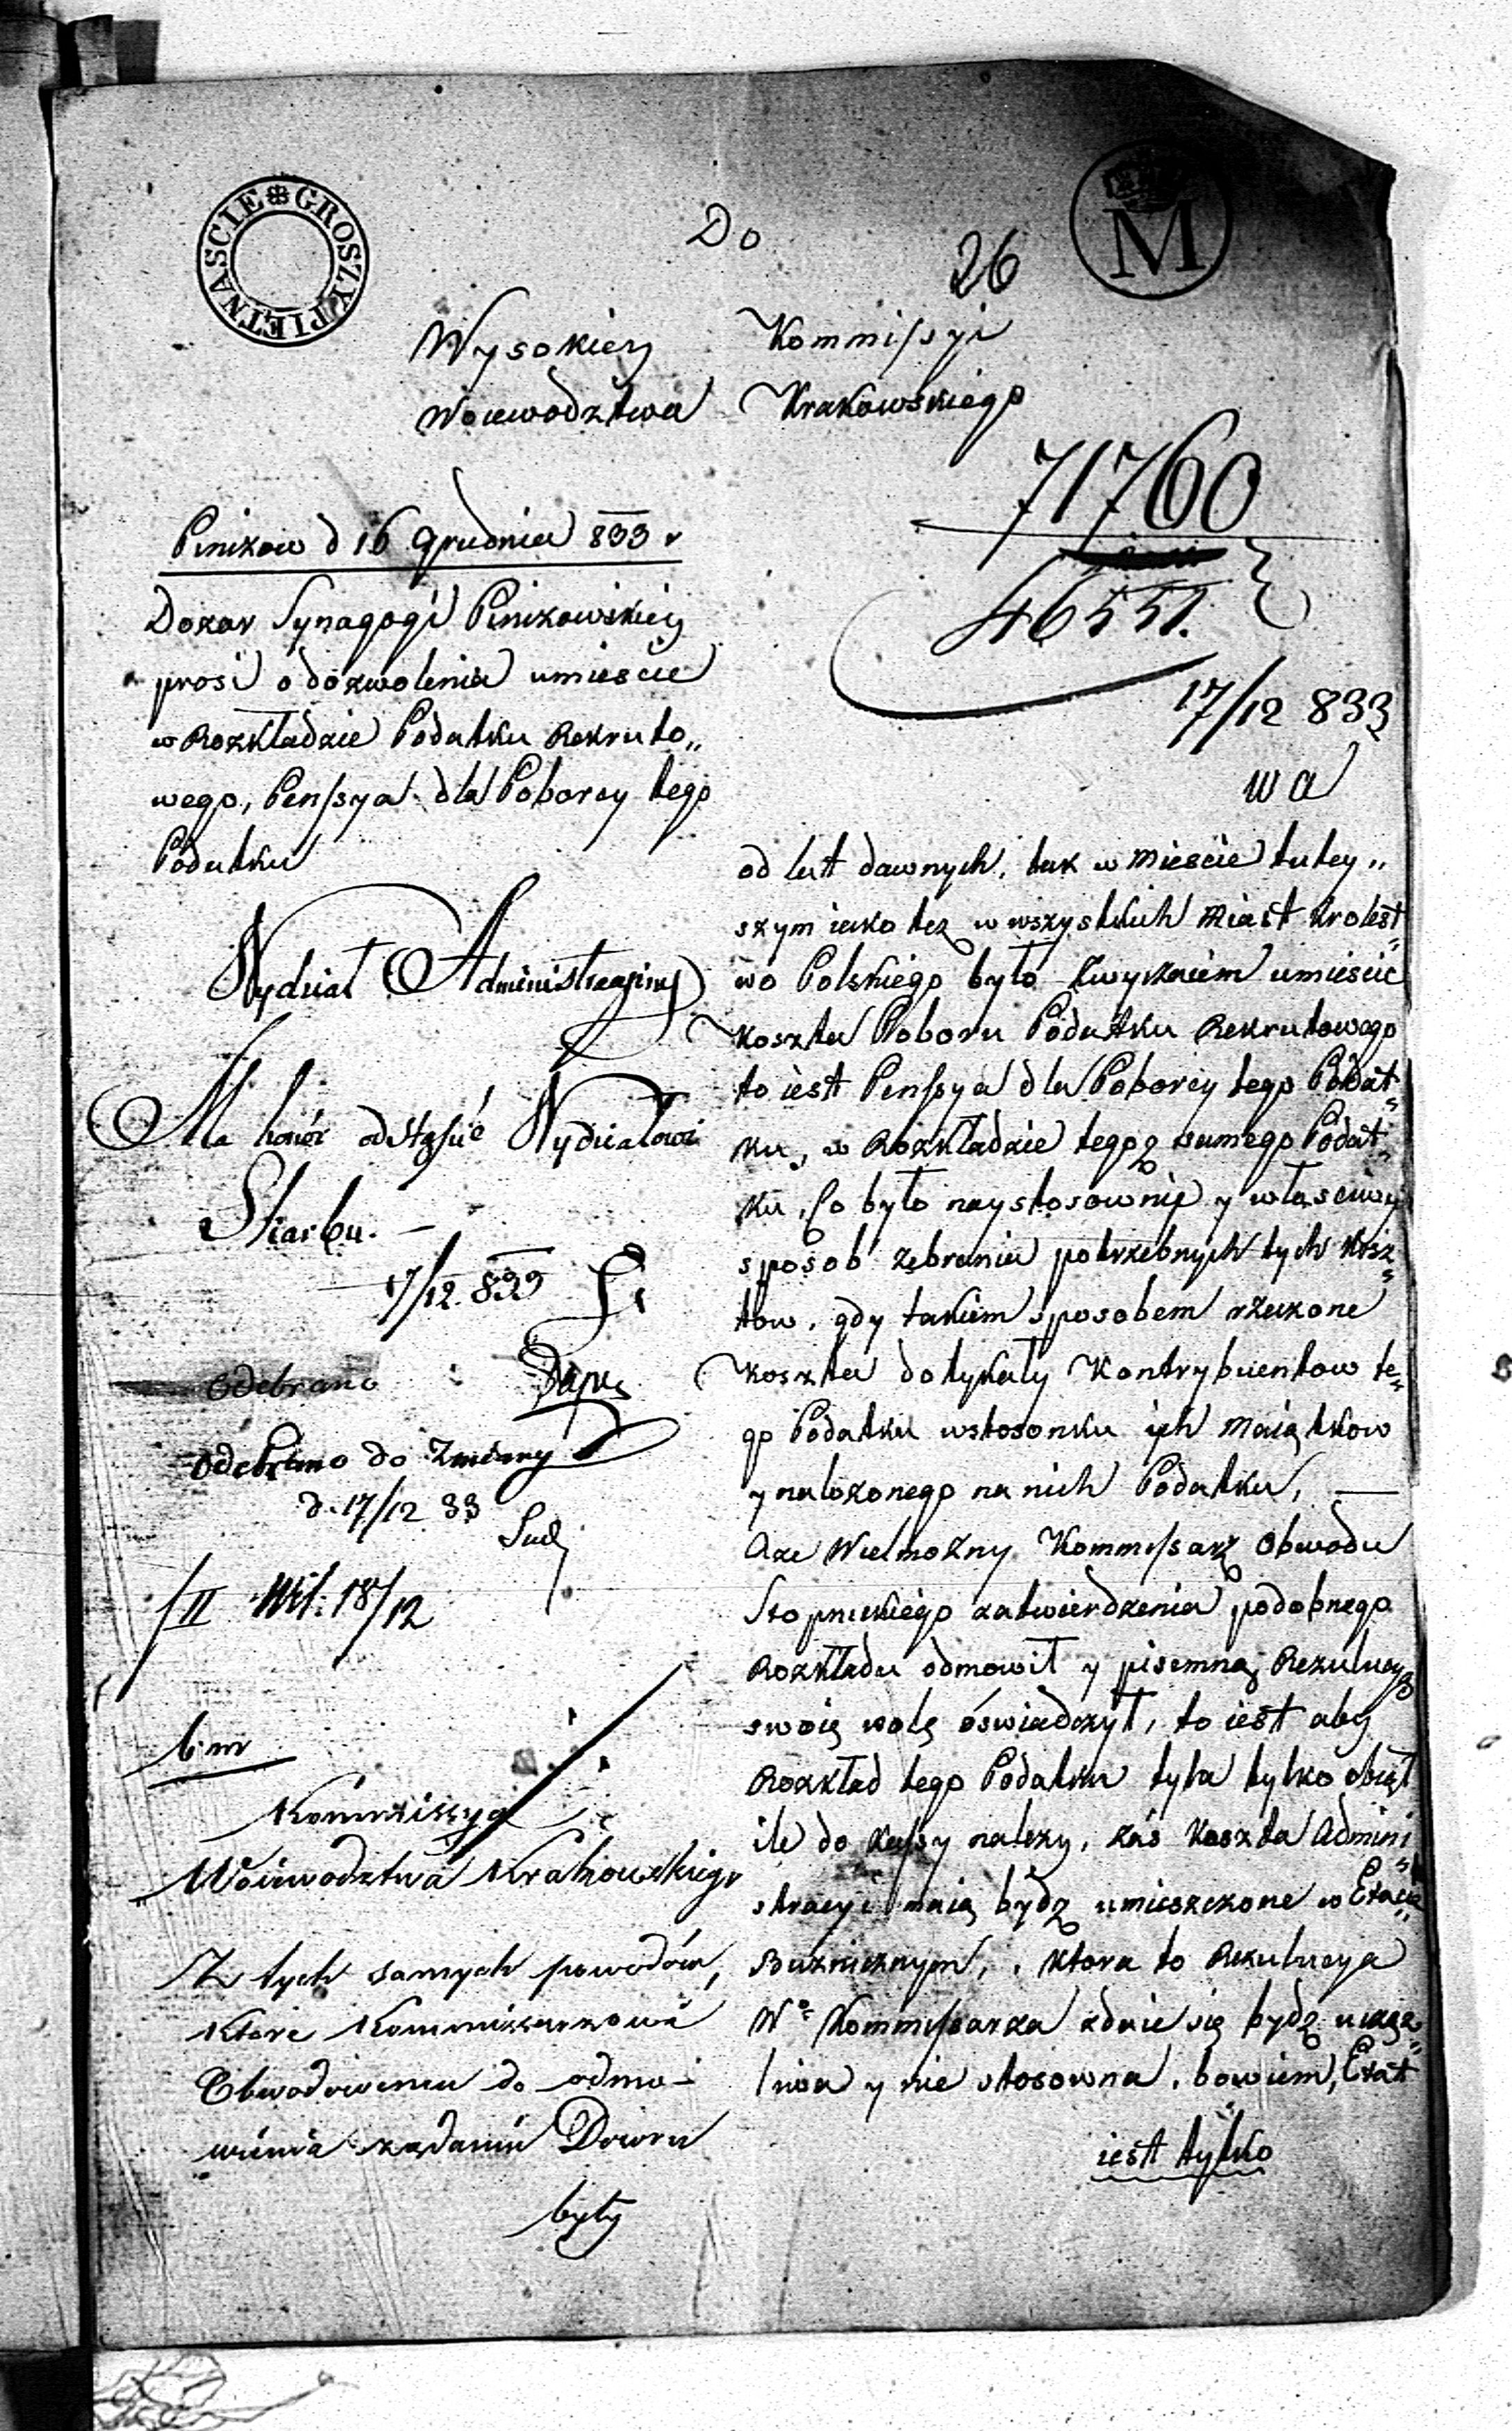 GROSZY PIĘTNAŚCIE
M
Do
26
Wysokiey Kommissyi
Woiewodztwa Krakowskiego
71760
46551.
17/12 833
wa
Pinczow d 16 Grudnia 833 r
Dozor Synagogi Pinczowskiey
prosi o dozwolenia umieście
w Rozkładzie Podatku Rekruto„
wego, Penssya dla Poborcy tego
Podatku
Wydział Administracyiny
Ma honor odstąpić Wydziałowi
Skarbu. —
17/12. 833
Odebrano
Odebrano do Zmiany
d. 17/12 33
II 18/12
b. m
Kommissya
Woiewodztwa Krakowskiego
Z tych samych powodów,
które Kommissarzowi
Obwodowemu do odmo-
wienia żądaniu Dozoru
były
od latt dawnych, tak w Mieście tutey„
szym iako też w wszystkich Miast Krolest„
wo Polskiego było zwyczaiem umieścić
koszta Poboru Podatku Rekrutowego
to iest Penssya dla Poborcy tego Podat„
ku, w Rozkładzie tegoz samego Podat„
ku, Co było naystosownię y właściwy
sposob zebrania potrzebnych tych kosz„
tow, gdy takiem sposobem rzeczone
koszta dotykały Kontrybuentow te„
go Podatku wstosonku ych Maiątkow
y nałozonego na nich Podatku, —
Aze Wielmozny Kommissarz Obwodu
Stopnickiego zatwierdzenia podobnego
Rozkładu odmowił y pisemną Rezulucyą
swoię wolę óswiadczył, to iest aby
Rozkład tego Podatku tyla tylko obiął
ile do Kassy nalezy, zaś koszta Admini„
stracyi maią bydz umieszczone w Etacie
Buznicznym, ktora to Rezulucya
Wo Kommissarza zdaie się bydz uciąz„
liwa y nie stosowna, bowiem, Etat
iest tylko